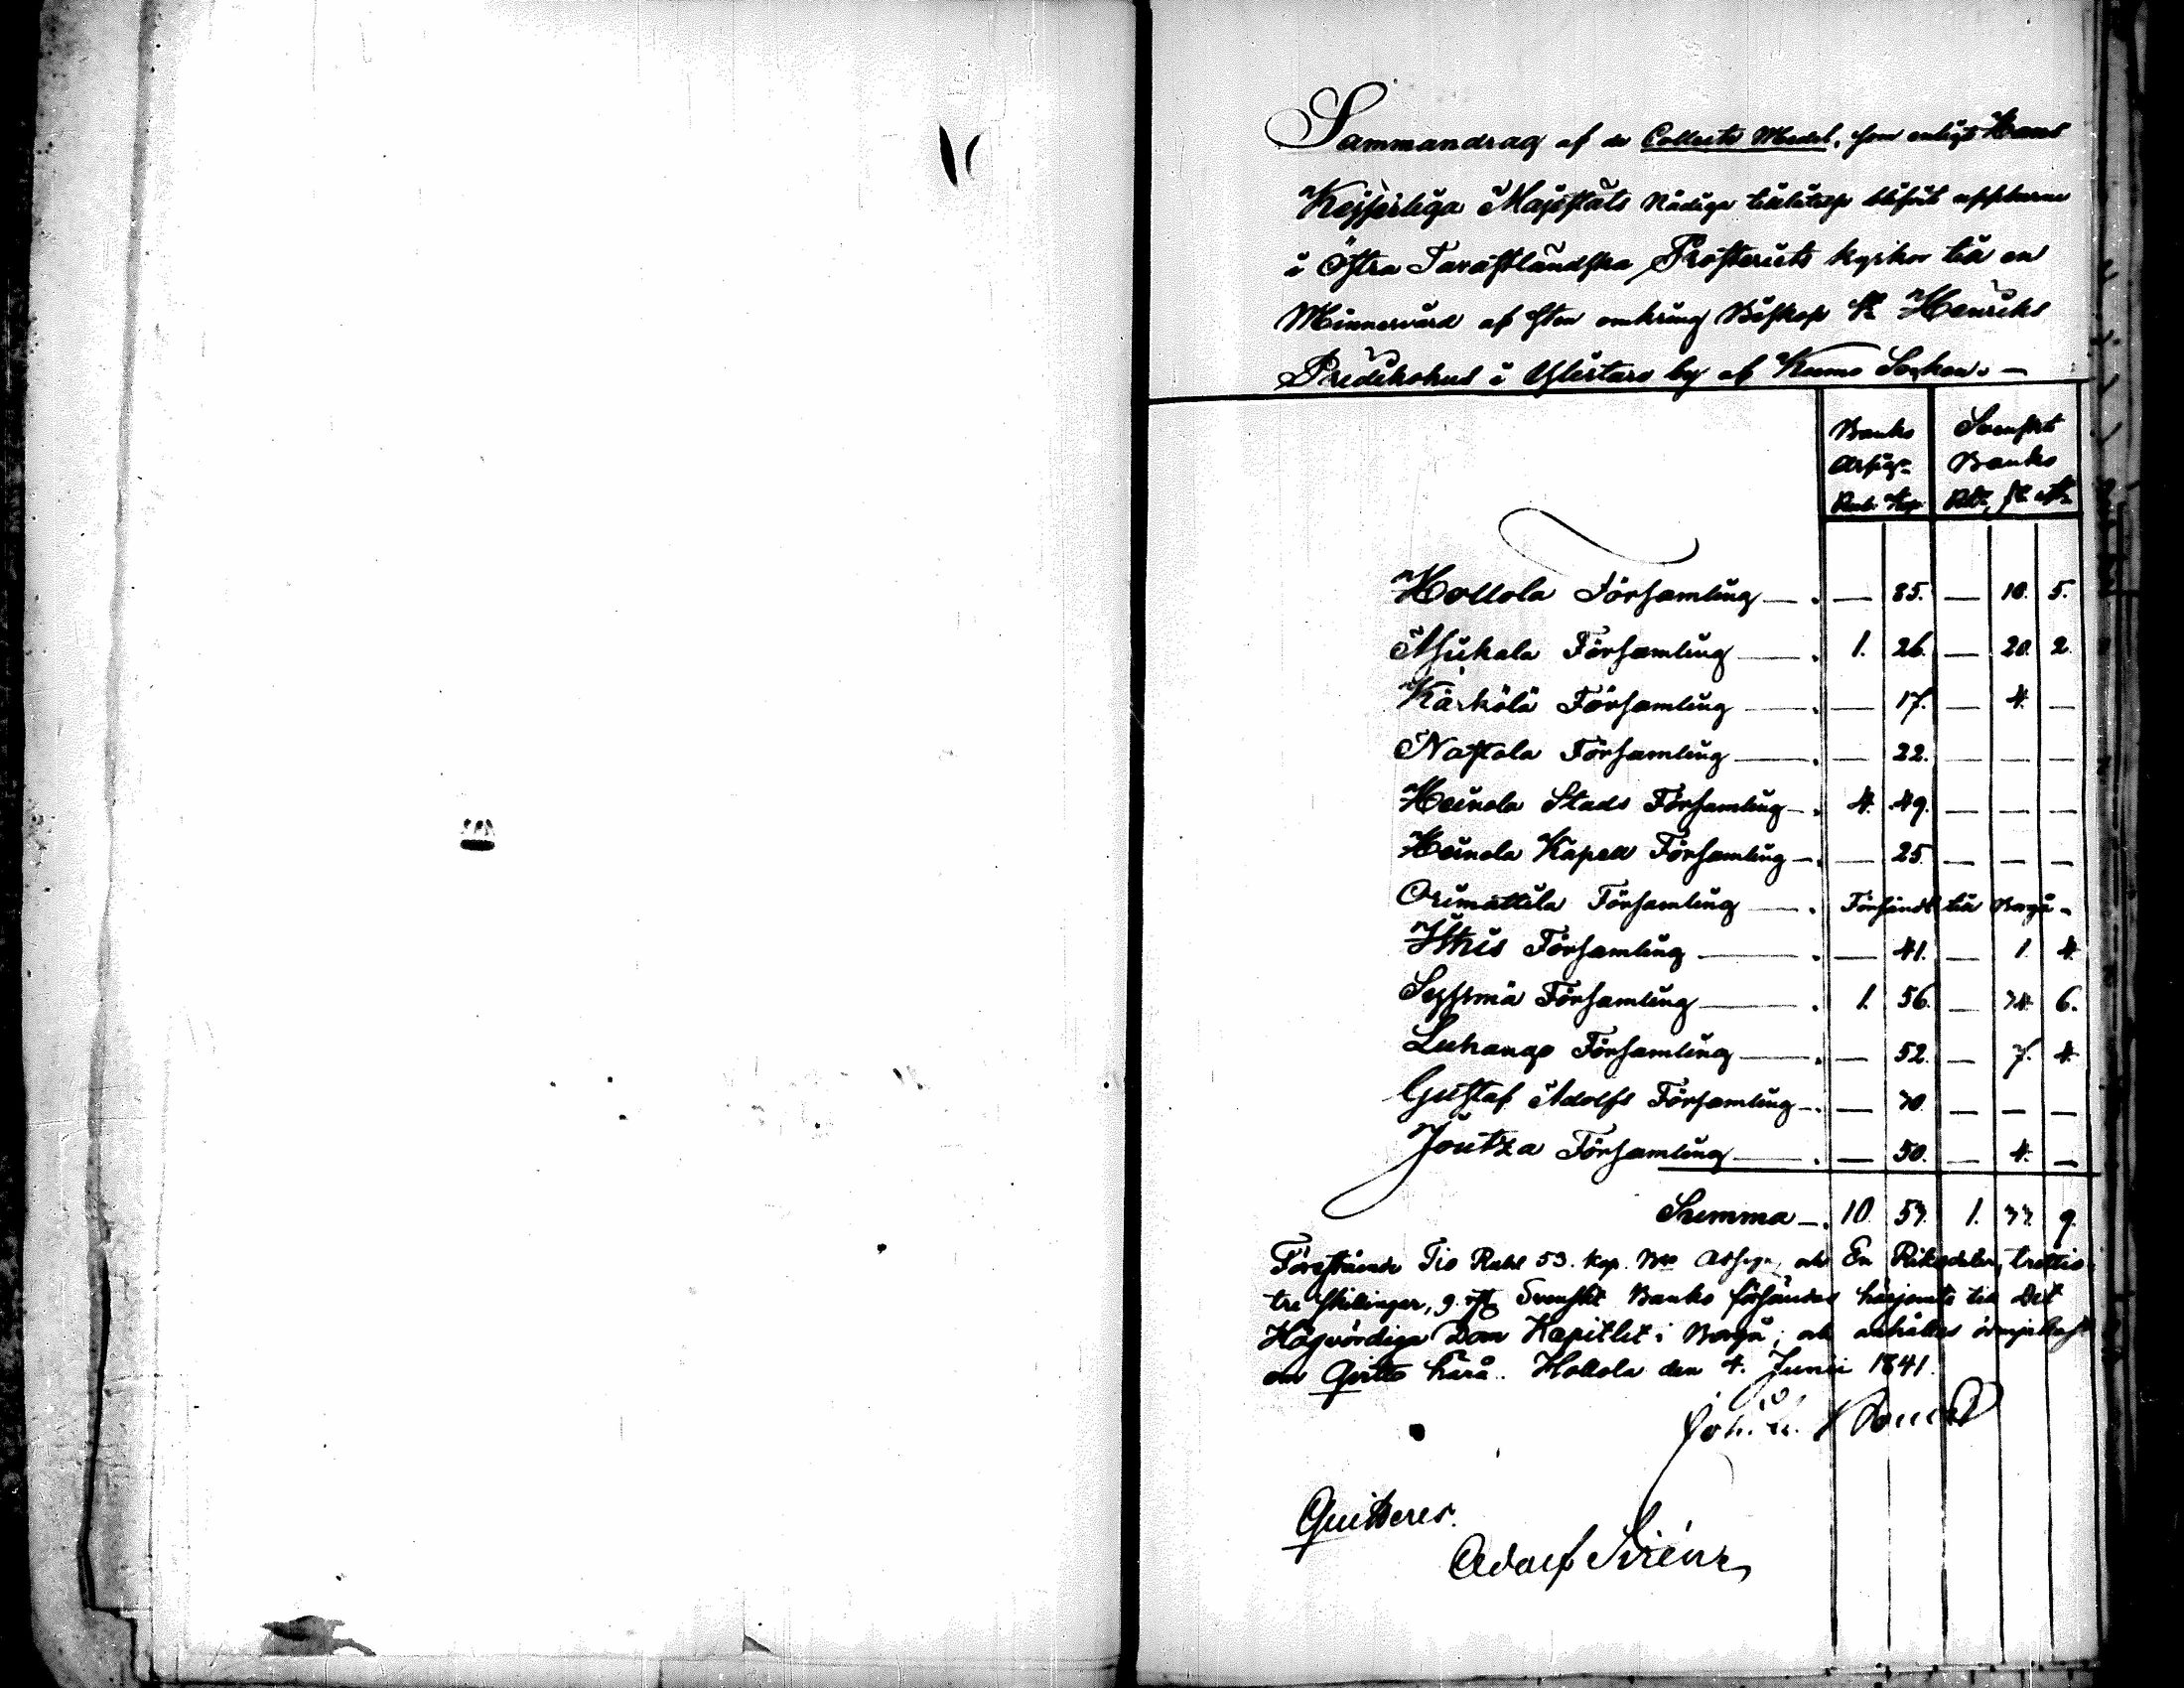 Sammandrag af de Collecte Medel, som enligt Hans
Kejserliga Majestäts Nådiga tillåtelse blifvit uppburne
i Östra Tavastländska Prosteriets kyrkor till en
Minnesvård af Sten omkring Biskop St Henriks
Predikohus i Ylistaro by af Kumo Socken. —
Banko Assign. Svenskt Banko
Rub. Kop. Rdr. sk. rst.
Hollola Församling — . — 85. — 10. 5.
Asikala Församling — . 1. 26. — 20. 2.
Kärkölä Församling — . — 17. — 4. —
Nastola Församling — . — 22. — — —
Heinola Stads Församling — . 4. 49. — — —
Heinola Kapell Församling — . — 25. — — —
Orimattila Församling — . Försändt till Borgå.
Ithis Församling — . — 41. — 1. 4.
Sysmä Församling — . 1. 56. — 34. 6.
Luhango Församling — . — 52. — 7. 4.
Gustaf Adolfs Församling — . — 30. — — —
Joutza Församling — . — 50. — 4. —
Summa — . 10. 53. 1. 33. 9.
Förestående Tio Rubl 53. kop. Bco Assign. och En Riksdaler, trettio-
tre skillingar, 9. rst. Svenskt Banko försändes härjemte till Det
Högvördiga Dom Kapitlet i Borgå, och anhålles
om Qvitto härå. Hollola den 4. Junii 1841.
Joh.
Quitteres.
Adolf Sirén